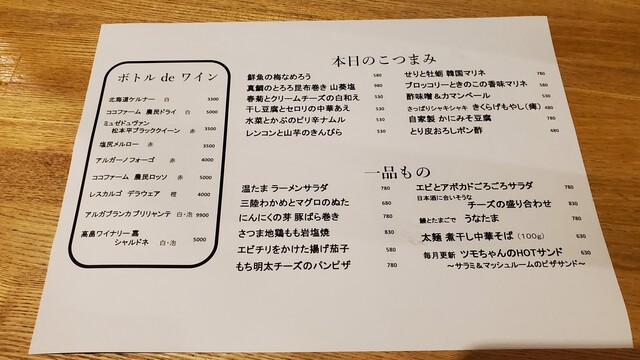 ボトル de ワイン
北海道ケルナー 白 3300
ココファーム 農民ドライ 白 5000
ミュゼドュヴァン
松本平ブラッククイーン 赤 3500
塩尻メルロー 赤 3500
アルガーノフォーゴ 赤 4000
ココファーム 農民ロッソ 赤 5000
レスカルゴ デラウェア 橙 4000
アルガブランカ ブリリャンテ 白・泡 9900
高畠ワイナリー 嘉
シャルドネ 白・泡 5000
本日のこつまみ
鮮魚の梅なめろう 580
真鯛のとろろ昆布巻き 山葵塩 980
春菊とクリームチーズの白和え 530
干し豆腐とセロリの中華あえ 530
水菜とかぶのピリ辛ナムル 530
レンコンと山芋のきんぴら 530
せりと牡蛎 韓国マリネ 780
ブロッコリーときのこの香味マリネ 580
酢味噌&カマンベール 530
さっぱりシャキシャキ きくらげもやし(痺) 480
自家製 かにみそ豆腐 780
とり皮おろしポン酢 480
一品もの
温たま ラーメンサラダ 780
三陸わかめとマグロのぬた 680
にんにくの芽 豚ばら巻き 780
さつま地鶏もも岩塩焼 830
エビチリをかけた揚げ茄子 580
もち明太チーズのパンピザ 780
エビとアボカドごろごろサラダ 780
日本酒に合いそうな
チーズの盛り合わせ 830
鰻とたまごで うなたま 780
太麺 煮干し中華そば (100g) 630
毎月更新 ツモちゃんのHOTサンド 630
~サラミ&マッシュルームのピザサンド~